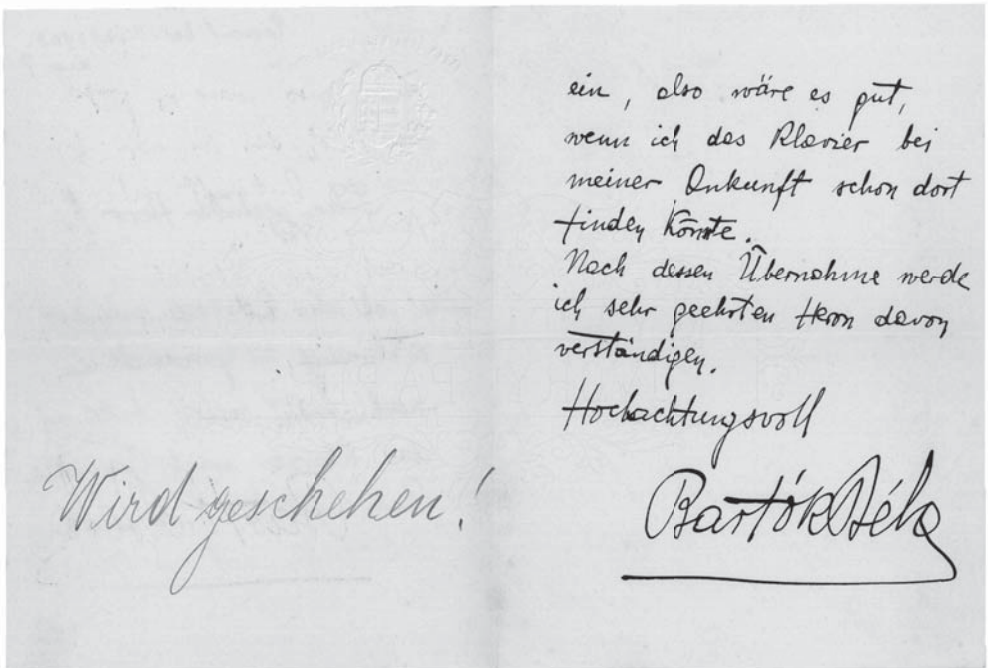 ein, also wäre es gut,
wenn ich das Klavier bei
meiner Ankunft schon dort
finden könnte.
Nach dessen Übernahme werde
ich sehr geehrten Herrn davon
verständigen.
Hochachtungsvoll
Bartók Béla
Wird geschehen!